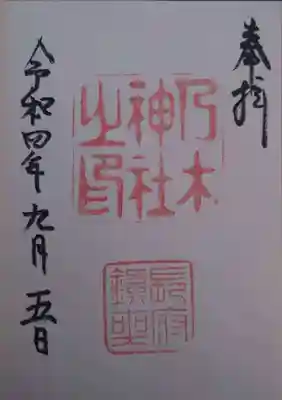 奉拝
乃木
神社
之印
長府
令和四年九月五日